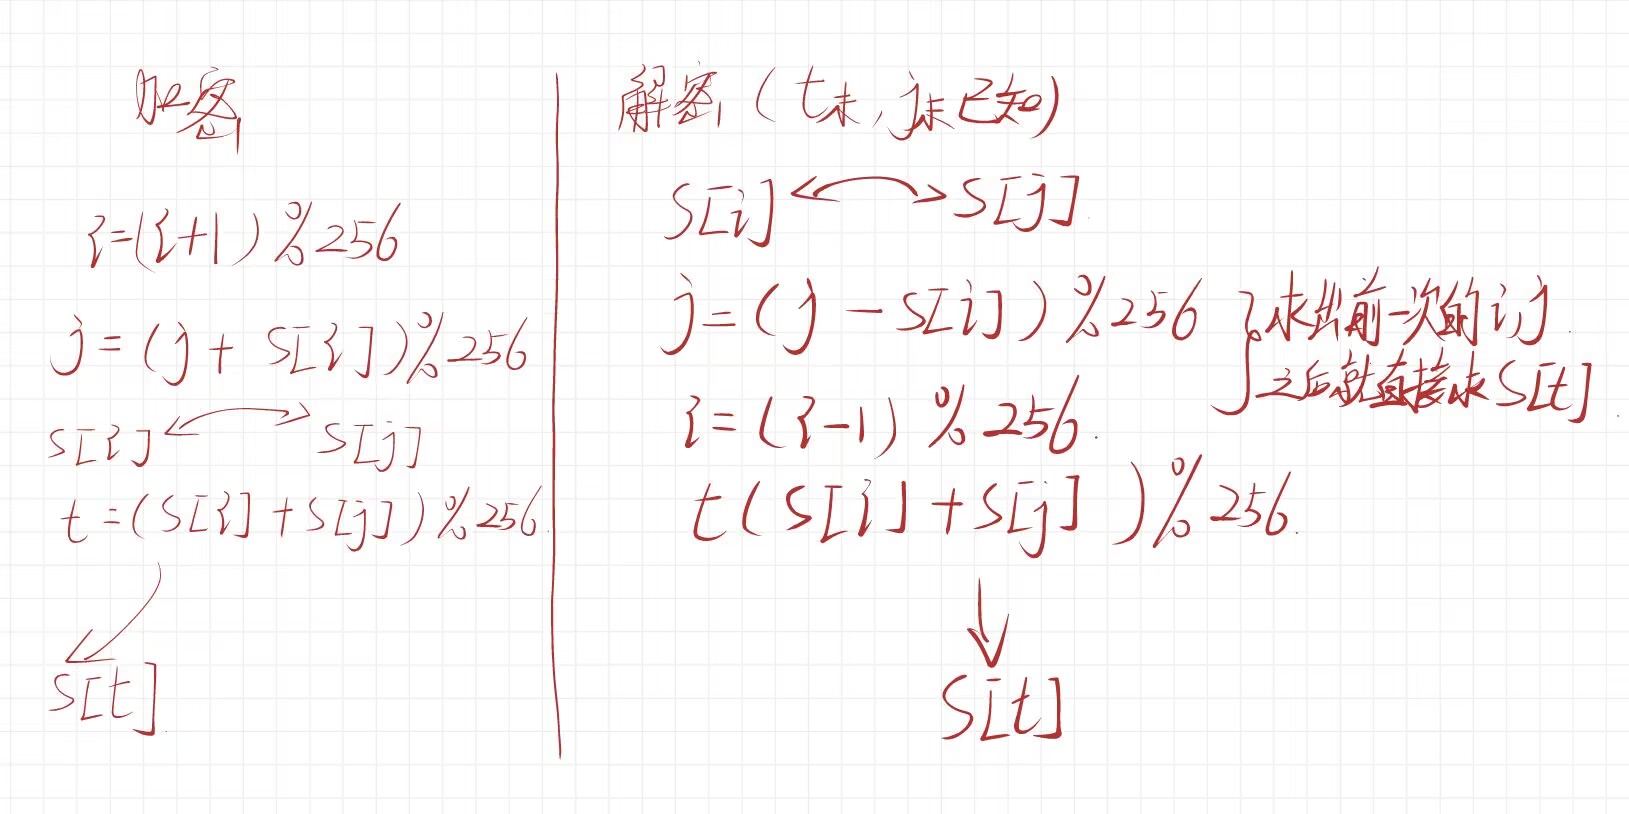 加密
i=(i+1)%256
j=(j+S[i])%256
S[i] S[j]
t=(S[i]+S[j])%256.
S[t].
解密(t末,j末已知)
S[i] S[j].
j=(j-S[i])%256
i=(i-1)%256.
求出前一次的i,j.
之后就直接求S[t].
t(S[i]+S[j])%256.
S[t]